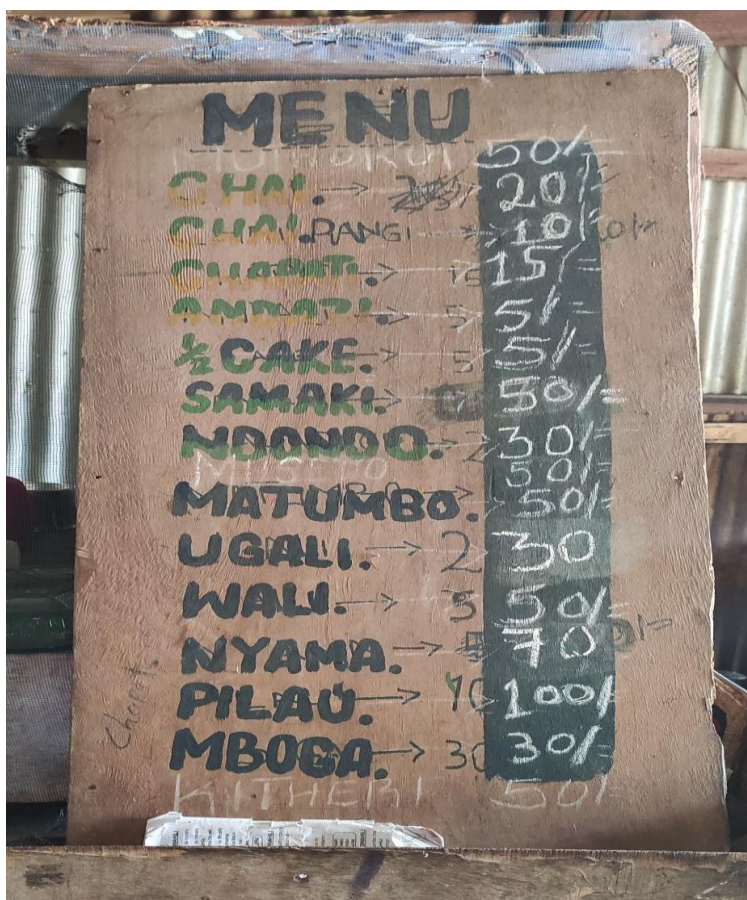 MENU
MUTHOKOI 50/=
CHAI. → 20/=
CHAI.RANGI → 10/=
CHAPATI. → 15/=
ANDAZI. → 5/=
½ CAKE. → 5/=
SAMAKI. → 50/=
NDONDO. → 30/=
MUSETO 50/=
MATUMBO. → 50/=
UGALI. → 30
WALI. → 50/=
NYAMA. → 70
PILAU. → 100/
MBOGA. → 30/=
KITHERI 50/=